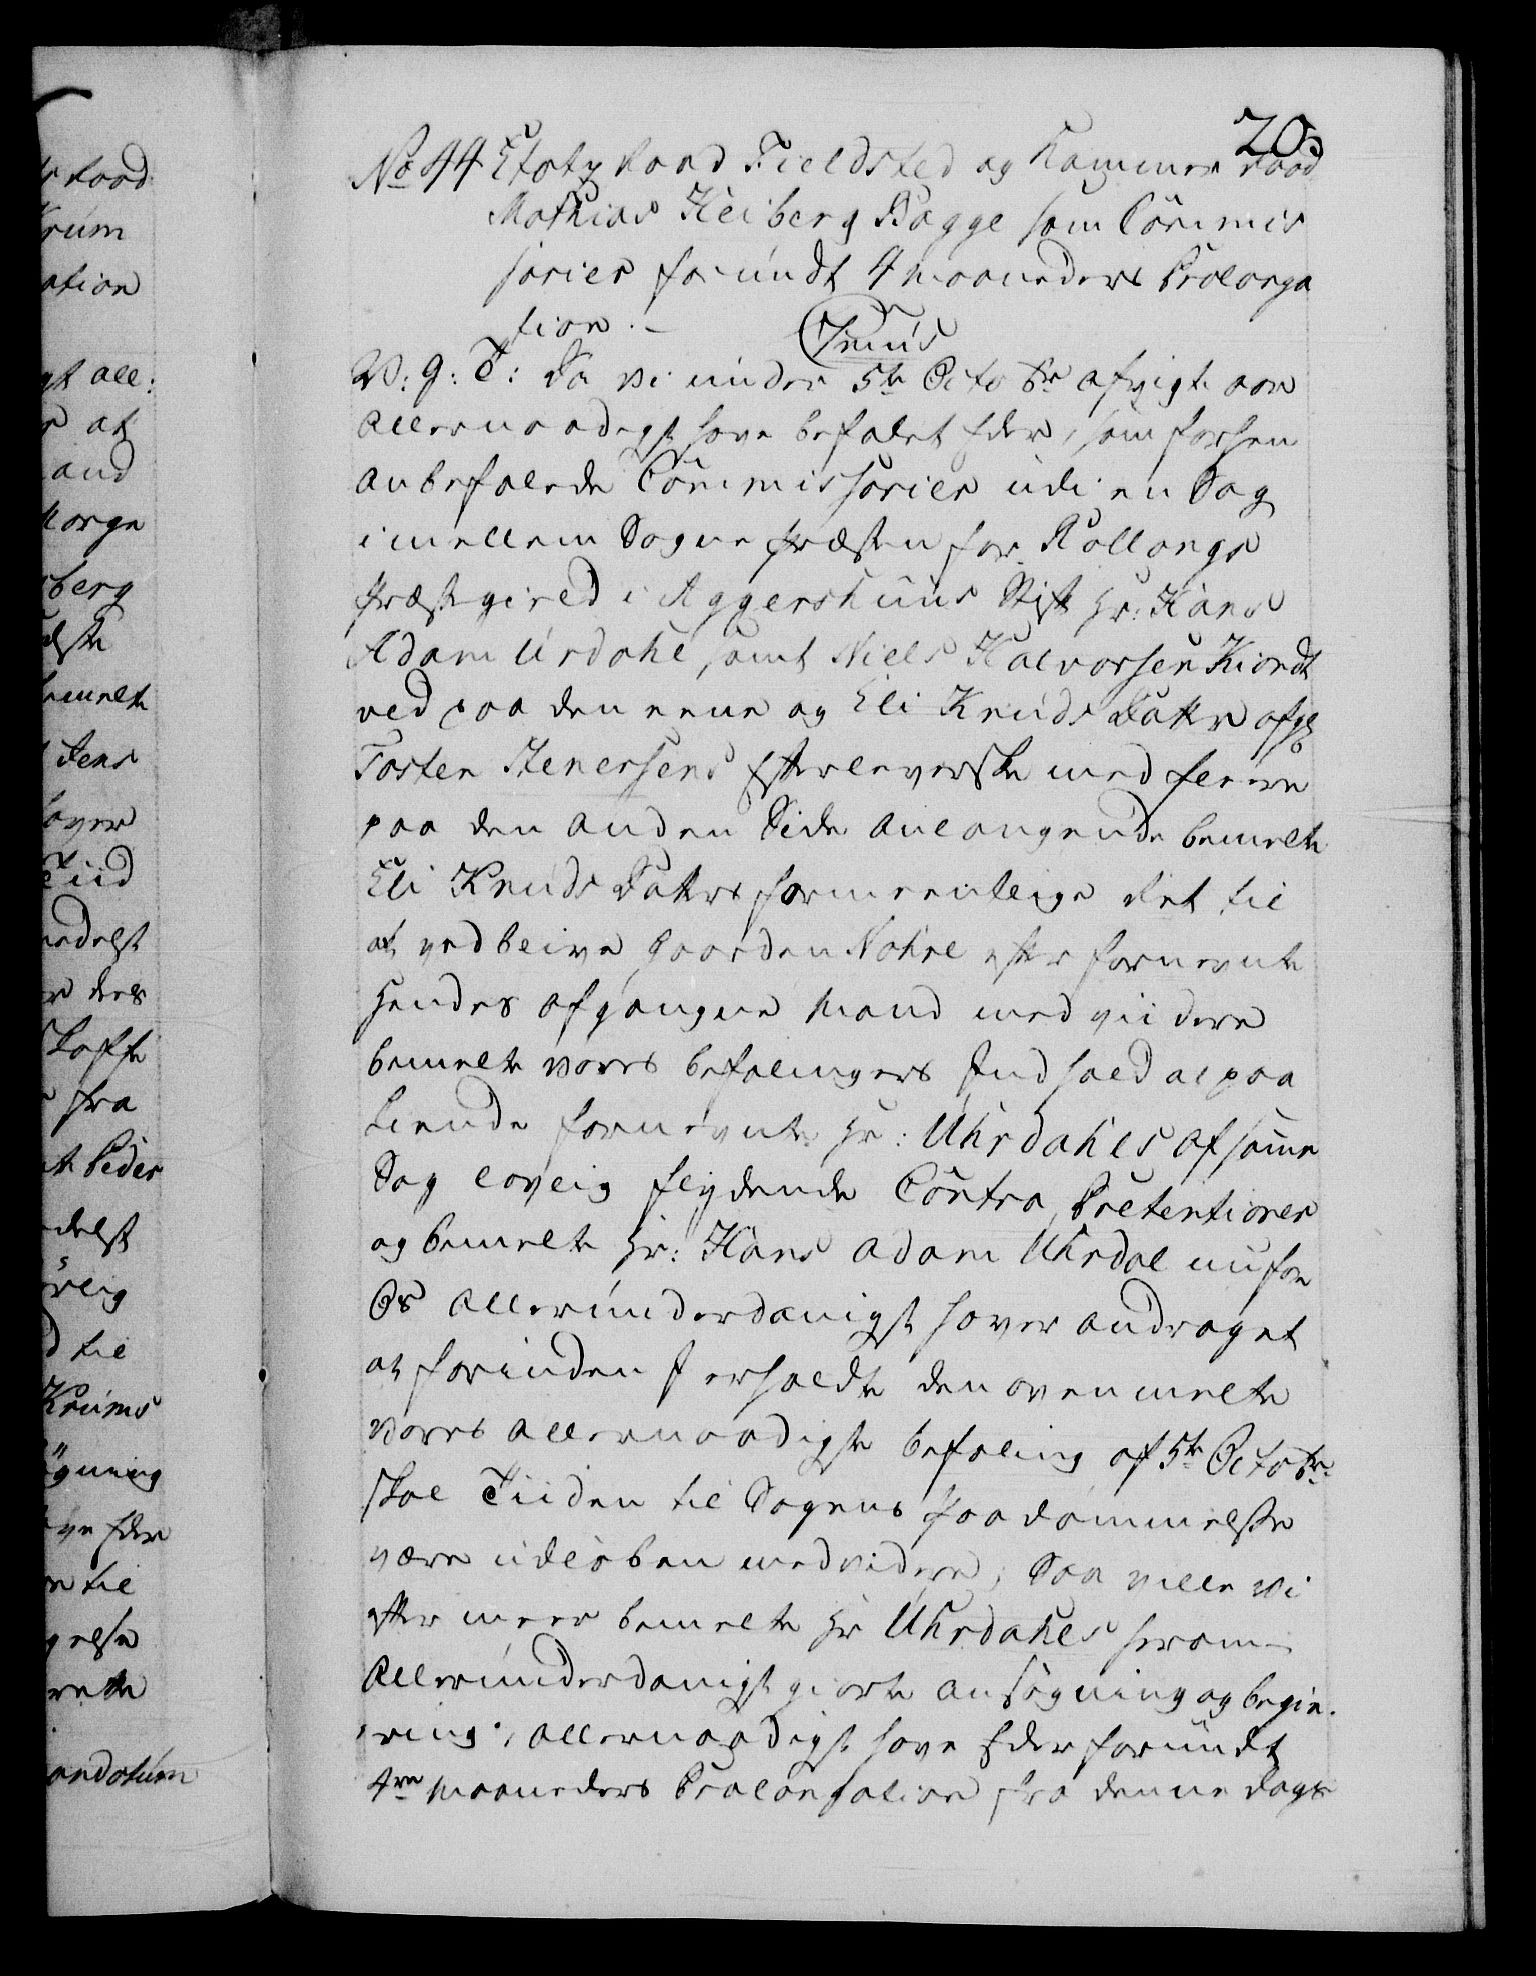 20.
No 44 Etatz Raad Fieldsted og Kammer raad
Mathias Heiberg Bagge som Commis
sarier forundt 4 maaneders Prolonga
tion. — Fruus
V: g: T: Da Vi under 5te Octobr afvigte aar
Allernaadigst have befalet Eder, som forhen
anbefalede Commissarier udi en Sag
imellem Sogne Præsten for Rollangs
Præstegield i Aggershuus Stift Hr: Hans
Adam Urdahl, samt Niels Halvorsen Kiordt
ved paa den eene og Eli Knuds Datter afg:
Tosten Stenersens Efterleverske med fleere
paa den anden Side anlangende bemelte
Eli Knuds Datters formeentlige Ret til
at vedblive Gaarden Nohre efter fornevnte
Hendes afgangne Mand med viidere
bemelte Vores befalingers Indhold al paa
kiende fornevnte Hr: Uhrdahls af samme
Sag lovlig flydende Contra Prætentioner
og bemelte Hr: Hans Adam Uhrdal nu for
Os Allerunderdanigst haver andraget
at forinden I erholdte den ovenmelte
Vores Allernaadigste befaling af 5te Octobr:
skal Tiiden til Sagens Paadømmelse
være udløben med videre; Saa ville Vi
efter meer bemelte Hr Uhrdahls herom
Allerunderdanigst giorte ansøgning og begie.
ring, Allernaadigst have Eder forundt
4re Maaneders Prolongation fra denne Dags